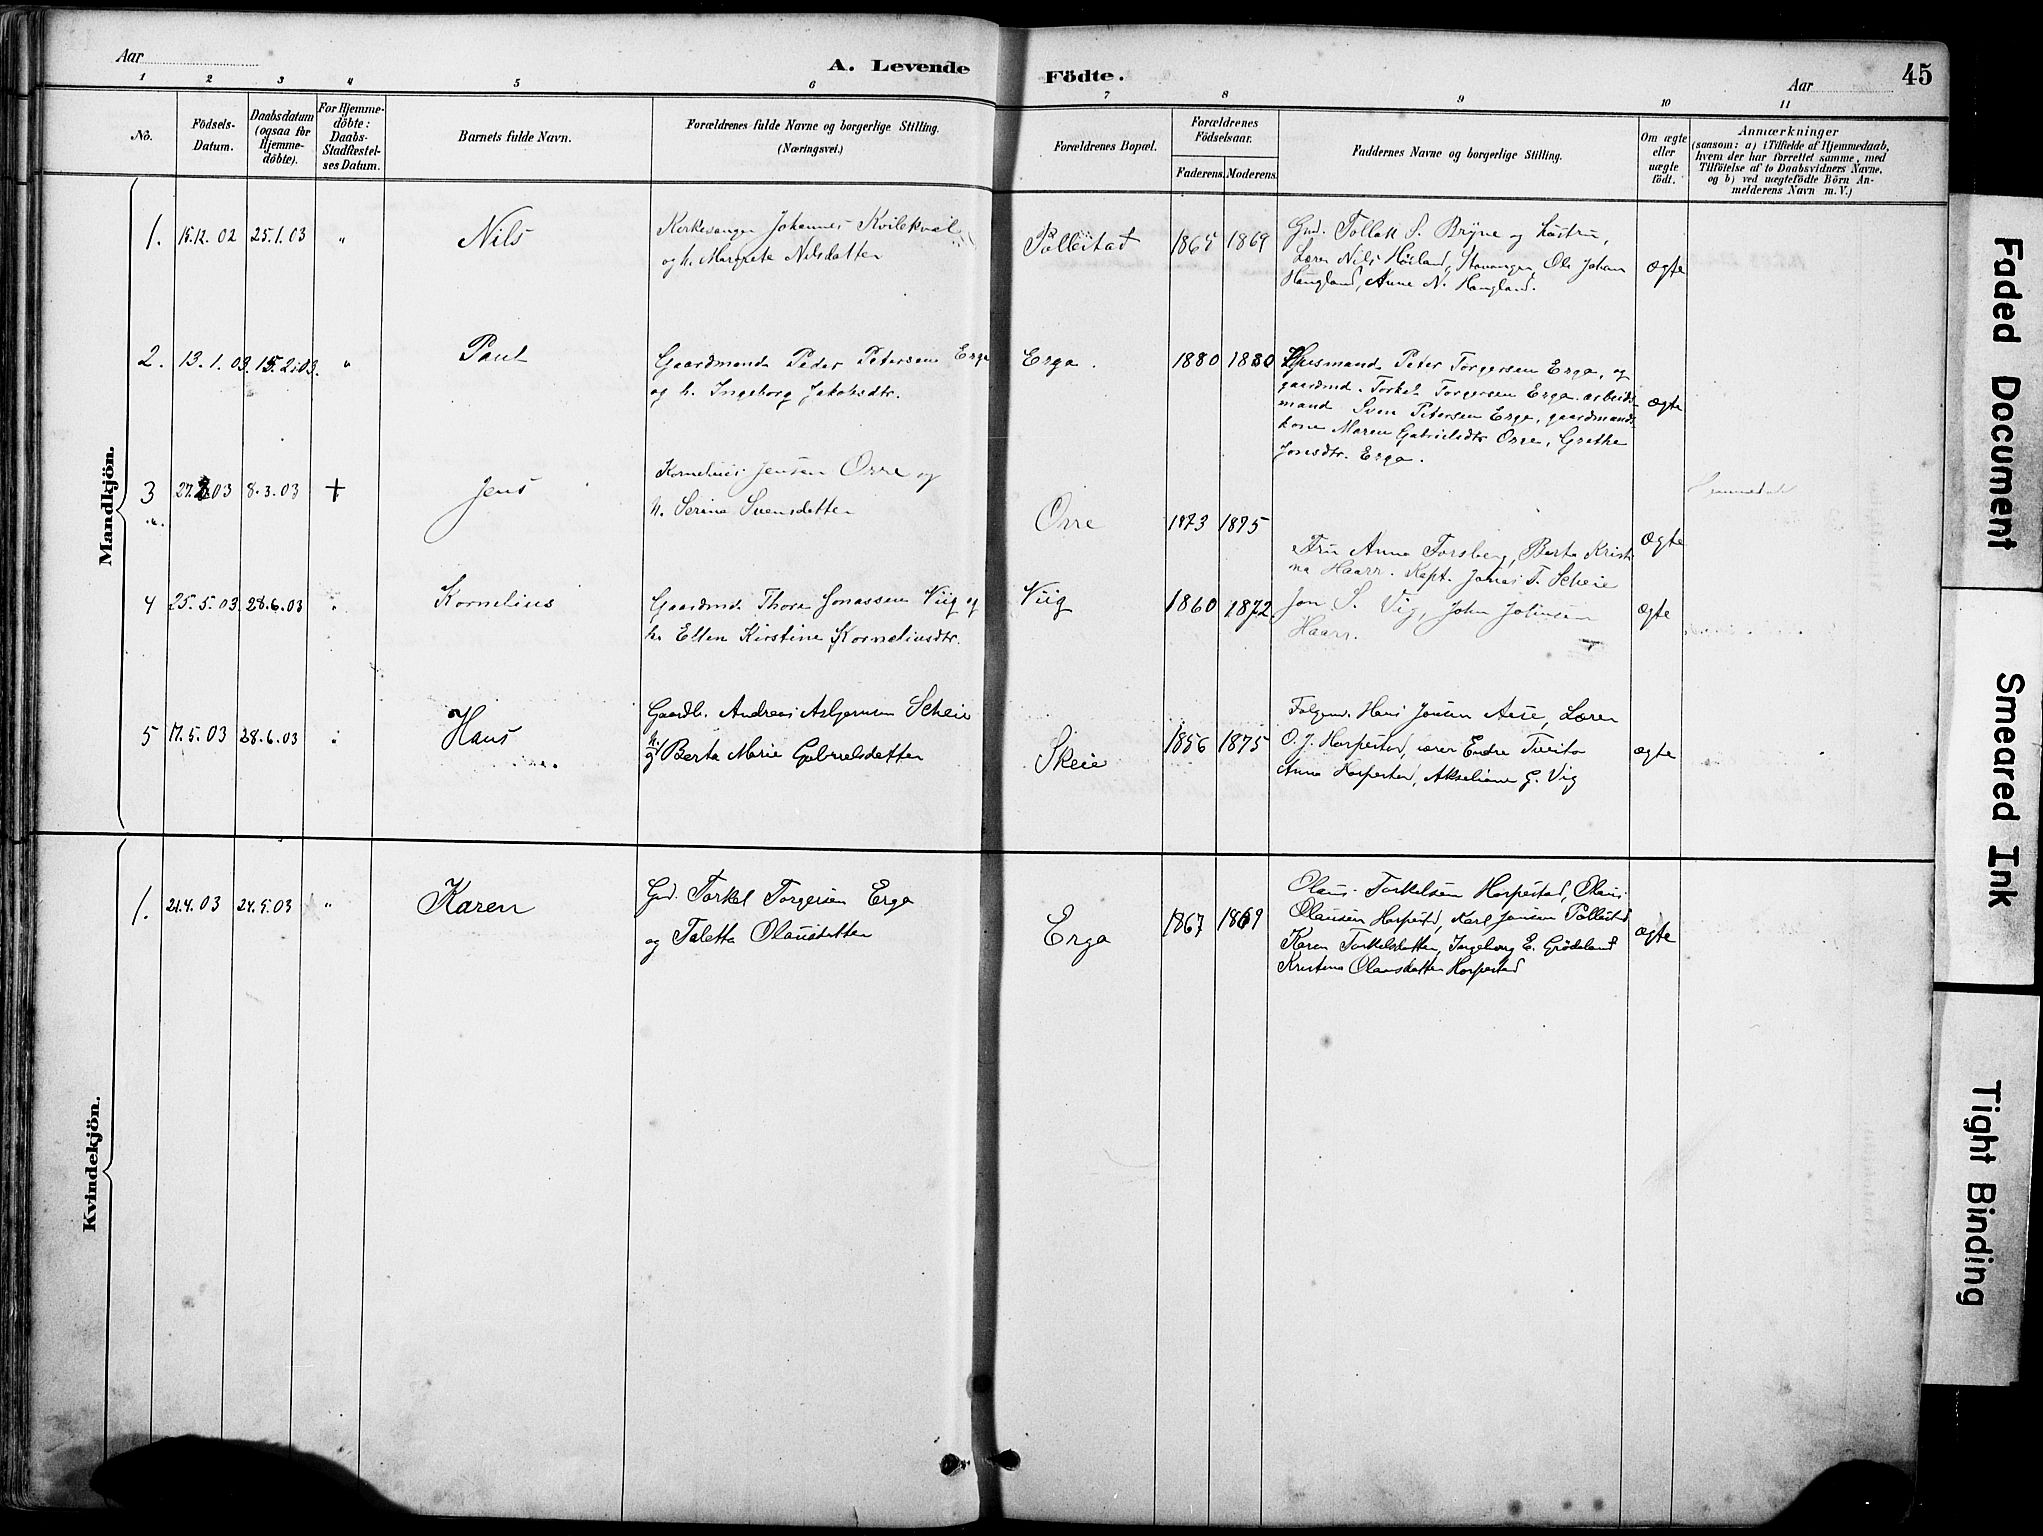 Aar
A. Levende Födte.
Aar
45
1 2 3 4 5 6 7 8 9 10 11
No.
Födsels-Datum.
Daabsdatum (ogsaa for Hjemme-döbte).
For Hjemme-döbte: Daabs-Stadfæstel-ses Datum.
Barnets fulde Navn.
Forældrenes fulde Navne og borgerlige Stilling.
(Næringsvei.)
Forældrenes Bopæl.
Forældrenes Födselsaar.
Faderens. Moderens.
Faddernes Navne og borgerlige Stilling.
Om ægte eller uægte födt.
Anmærkninger
(saasom: a) i Tilfælde af Hjemmedaab,
hvem der har forrettet samme, med
Tilföielse af to Daabsvidners Navne,
og b) ved uægtefödte Börn An-
melderens Navn m. V.)
Mandkjön.
1. 15.12.02 25.1.03 " Nils
Kirkesanger Johannes Kvilekval
og h. Margrete Nilsdatter
Pollestad 1865 1869
Gmd. Tollak S. Bryne og hustru,
Lærer Nils Höiland, Stavanger, Ole Johan
Haugland, Anne N. Haugland.
ægte
2. 13.1.03 15.2.03. " Paul
Gaardmand Peder Petersen Erga
og h. Ingeborg Jakobsdtr.
Erga. 1880 1880
Husmand Peter Torgersen Erga, og
gaardmd. Torkel Torgersen Erga. arbeids-
mand Sven Petersen Erga, gaardmands-
kone Maren Gabrielsdtr Orre, Grethe
Jonsdtr. Erga.
ægte
3 27.2.03 8.3.03 + Jens
Kornelius Jensen Orre og
h. Serina Svensdatter
Orre 1873 1875
ægte
Fru Anna Forsberg, Berta Kristi-
na Haarr. Kapt. Jonas T. Scheie
4 25.5.03 28.6.03 " Kornelius
Gaardmd. Thore Jonassen Viig og
h. Ellen Kirstine Korneliusdtr.
Viig 1860 1872
Jon S. Vig, John Johnsen
Haarr.
ægte
5 17.5.03 28.6.03 " Hans
Gaardb. Andreas Asbjørnsen Scheie
og h. Berta Marie Gabrielsdatter
Skeie 1856 1875
Folgemd. Hans Jonsen Aase, Lærer
O. J. Horpestad, lærer Endre Tveito
Anna Horpestad, Akseliane G. Vig
ægte
Kvindekjön.
1. 21.4.03 24.5.03 " Karen
Gmd. Torkel Torgersen Erga
og Taletta Olausdatter
Erga 1867 1869
Olaus Torkelsen Horpestad, Olaus
Olausen Horpestad, Karl Jonsen Pollestad
Karen Torkelsdatter, Ingeborg E. Grödeland
Kristina Olausdatter Horpestad
ægte
Faded Document
Smeared Ink
Tight Binding